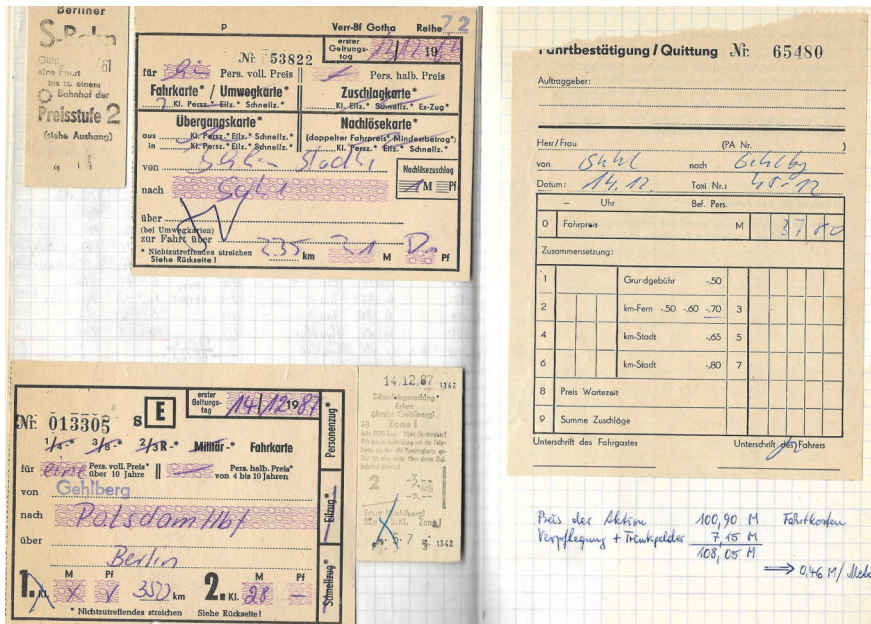 Berliner
S-Bahn
eine Fahrt
bis zu einem
Bahnhof der
Preisstufe 2
(siehe Aushang)
P Verr-Bf Gotha Reihe 72
Nr. 53822
erster Geltungstag 19
für Pers. voll. Preis Pers. halb. Preis
Fahrkarte* / Umwegkarte* Zuschlagkarte*
Kl. Persz.* Eilz.* Schnellz.* Kl. Eilz.* Schnellz.* Ex-Zug*
Übergangskarte* Nachlösekarte*
aus Kl. Persz.* Eilz.* Schnellz.* (doppelter Fahrpreis* Mindestbetrag*)
in Kl. Persz.* Eilz.* Schnellz.* Kl. Persz.* Eilz.* Schnellz.*
von
Nachlösezuschlag
M Pf
nach Suhl
über
(bei Umwegkarten)
zur Fahrt über 235 km 31 M Pf
* Nichtzutreffendes streichen
Siehe Rückseite!
Nr. 013305 S E
erster Geltungstag 14/12 1987
1/4-* 3/8-* 2/3 R-* Militär-* Fahrkarte
für eine Pers. voll. Preis* über 10 Jahre Pers. halb. Preis* von 4 bis 10 Jahren
von Gehlberg
nach Potsdam Hbf
über Berlin
1. Kl. M Pf km 2. Kl. M 28 Pf –
* Nichtzutreffendes streichen Siehe Rückseite!
Personenzug*
Eilzug*
Schnellzug*
14.12.87 1342
Erfurt
(Gehlberg)
Zone I
2 -3,--
1342
Fahrtbestätigung / Quittung Nr. 65480
Auftraggeber:
Herr/Frau (PA Nr. )
von Suhl nach Gehlbg
Datum: 14.12. Taxi Nr.:
– Uhr Bef. Pers.
0 Fahrpreis M 37 80
Zusammensetzung:
1 Grundgebühr -,50
2 km-Fern -,50 -,60 -,70 3
4 km-Stadt -,65 5
6 km-Stadt -,80 7
8 Preis Wartezeit
9 Summe Zuschläge
Unterschrift des Fahrgastes Unterschrift des Fahrers
Preis der Aktion 100,90 M Fahrtkosten
Verpflegung + Trinkgelder 7,15 M
108,05 M
⟹ 0,46 M/